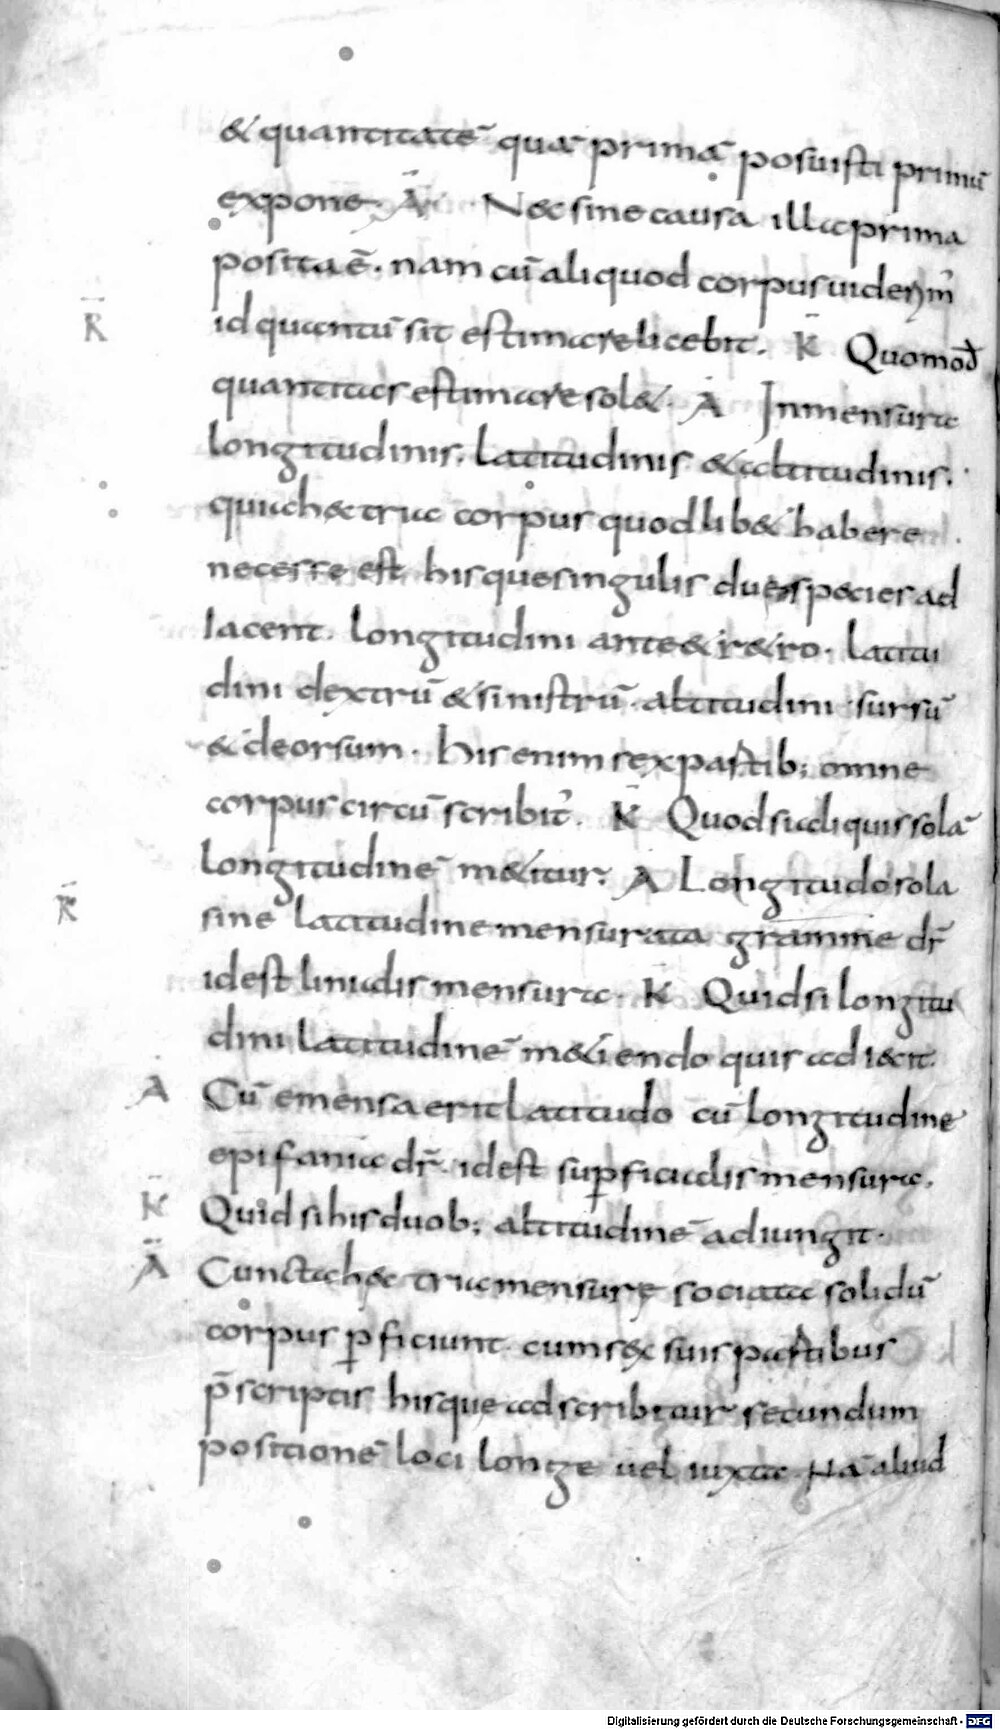 & quantitatē quā primā posuisti primū
expone. Ā Nec sine causa illic prima
posita ē. nam cū aliquod corpus uiderim̄
K̄
id quantū sit estimare licebit. K̄ Quomođ
quantitas estimare sol&. Ā In mensura
longitudinis. latitudinis & altitudinis.
quia hec tria corpus quodlib& habere
necesse est. hisque singulis duę species ad
iacent. longitudini ante & r&ro. latitu
dini dextrū & sinistrū. altitudini sursū
& deorsum. his enim sex partib; omne
corpus circū scribit̄. K̄ Quod si aliquis solā
longitudinē m&itur. A Longitudo sola
K̄
sine latitudine mensurata gramme dr̄
id est linialis mensura. K̄ Quid si longitu
dini latitudinē m&iendo quis adiecit.
Ā Cū emensa erit latitudo cū longitudine
epifania dr̄. id est supficialis mensura.
K̄ Quid si his duob; altitudinē adiungit.
Ā Cuncta hec tria mensure sociata solidū
corpus pficiunt. cum sex suis partibus
p̄scriptis hisque adscribitur secundum
positionē loci longe uel iuxta. Nā aliud
Digitalisierung gefördert durch die Deutsche Forschungsgemeinschaft - DFG